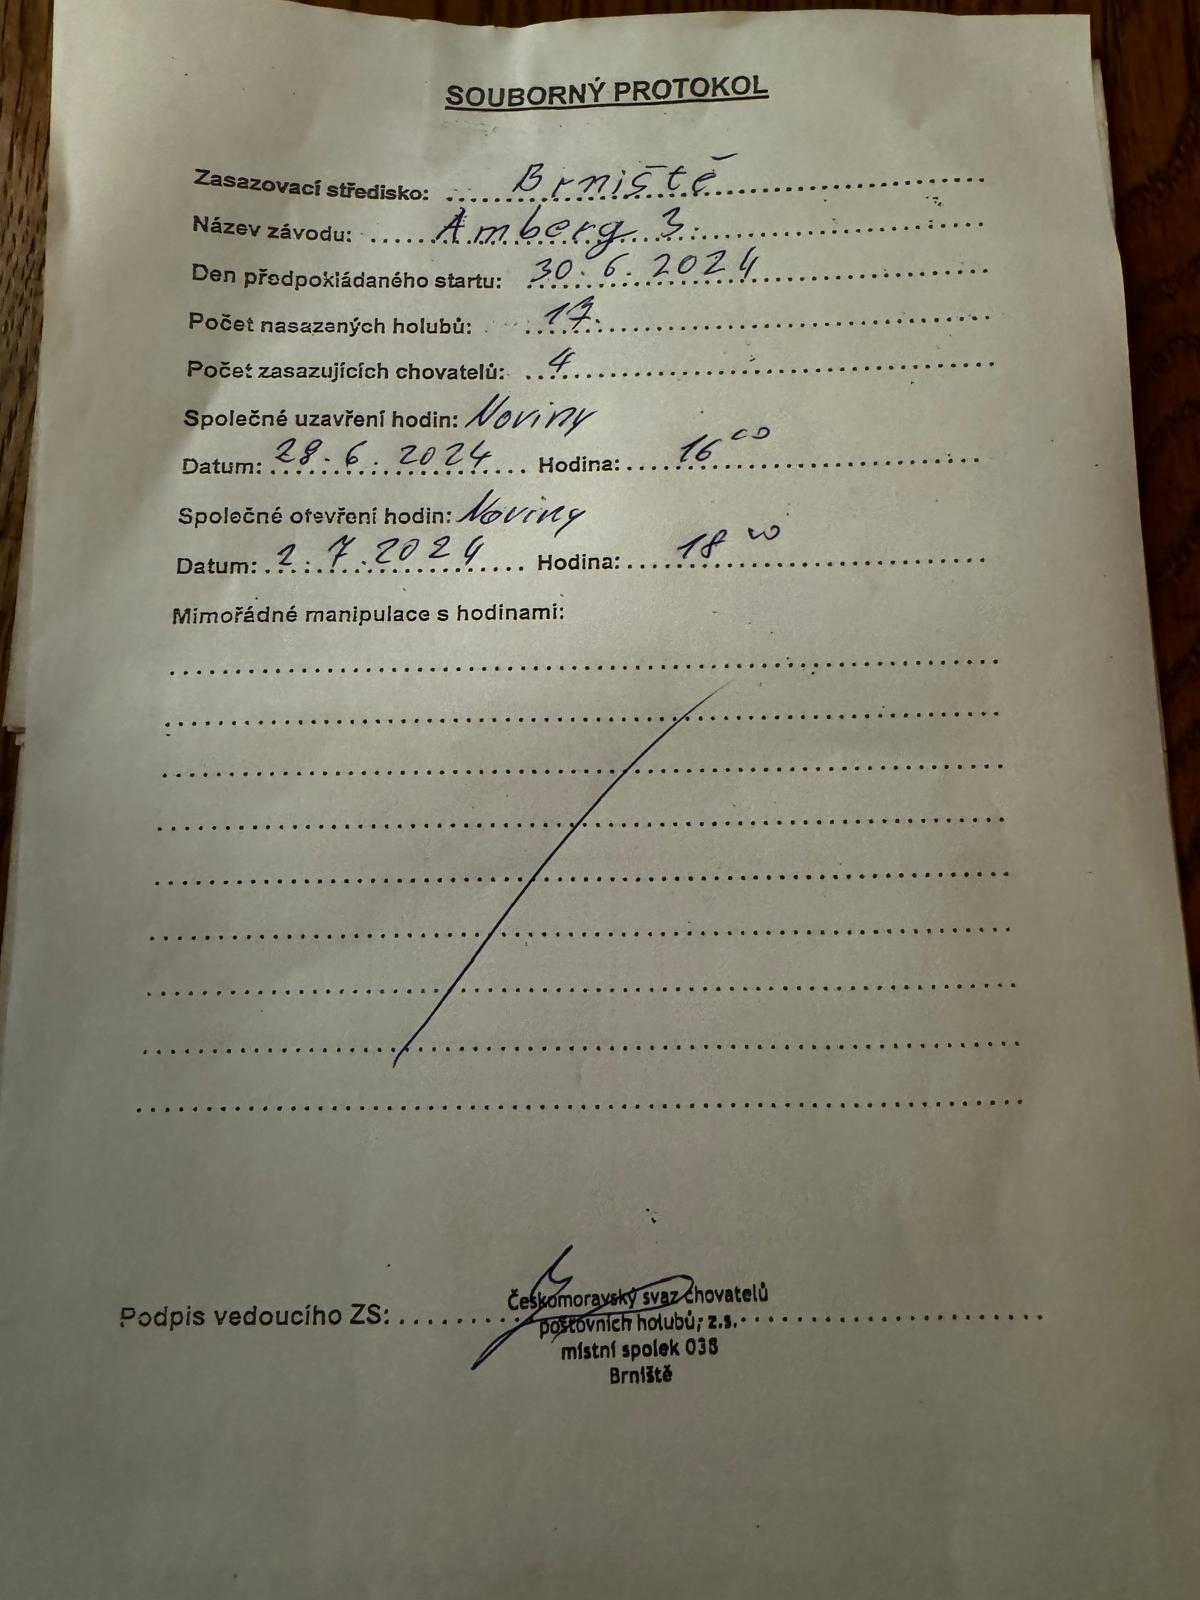 SOUBORNÝ PROTOKOL
Zasazovací středisko: Brniště
Název závodu: Amberg 3.
Den předpokládaného startu: 30.6.2024
Počet nasazených holubů:
Počet zasazujících chovatelů: 4
Společné uzavření hodin: Noviny
Datum: 28.6.2024 Hodina: 16 00
Společné otevření hodin: Noviny
Datum: 2.7.2024 Hodina: 18 00
Mimořádné manipulace s hodinami:
Podpis vedoucího ZS:
Českomoravský svaz chovatelů
poštovních holubů, z.s.
místní spolek 038
Brniště